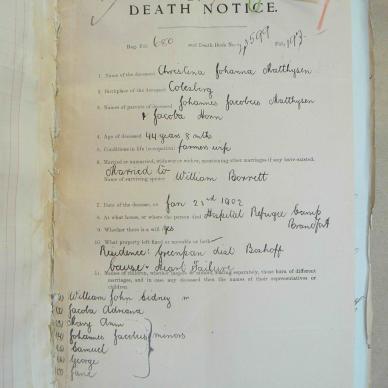 DEATH NOTICE.
Reg. Fol. 680 and Death Book No. 3599 Fol. 197
1. Name of the deceased Christina Johanna Matthysen
2. Birthplace of the deceased Colesberg
3. Names of parents of deceased Johannes Jacobus Matthysen
& Jacoba Horn
4. Age of deceased 44 years, 8 mths
5. Conditions in life (occupation) farmers wife
6. Married or unmarried, widower or widow, mentioning other marriages if any have existed.
Married to
Name of surviving spouse William Borrett
7. Date of the decease, on Jan 23rd 1902
8. At what house, or where the person died Hospital Refugee Camp
Brandfort
9. Whether there is a will yes
10. What property left fixed or movable or both
Residence: Greenpan dist Boshoff
Cause: Heart Failure
11. Names of children, whether majors or minors, stating separately, those born of different
marriages, and in case any deceased then the names of their representatives or
children.
(1) William John Sidney m
(2) Jacoba Adriana
(3) Mary Ann
(4) Johannes Jacobus minors
(5) Samuel
(6) George
(7) Jane